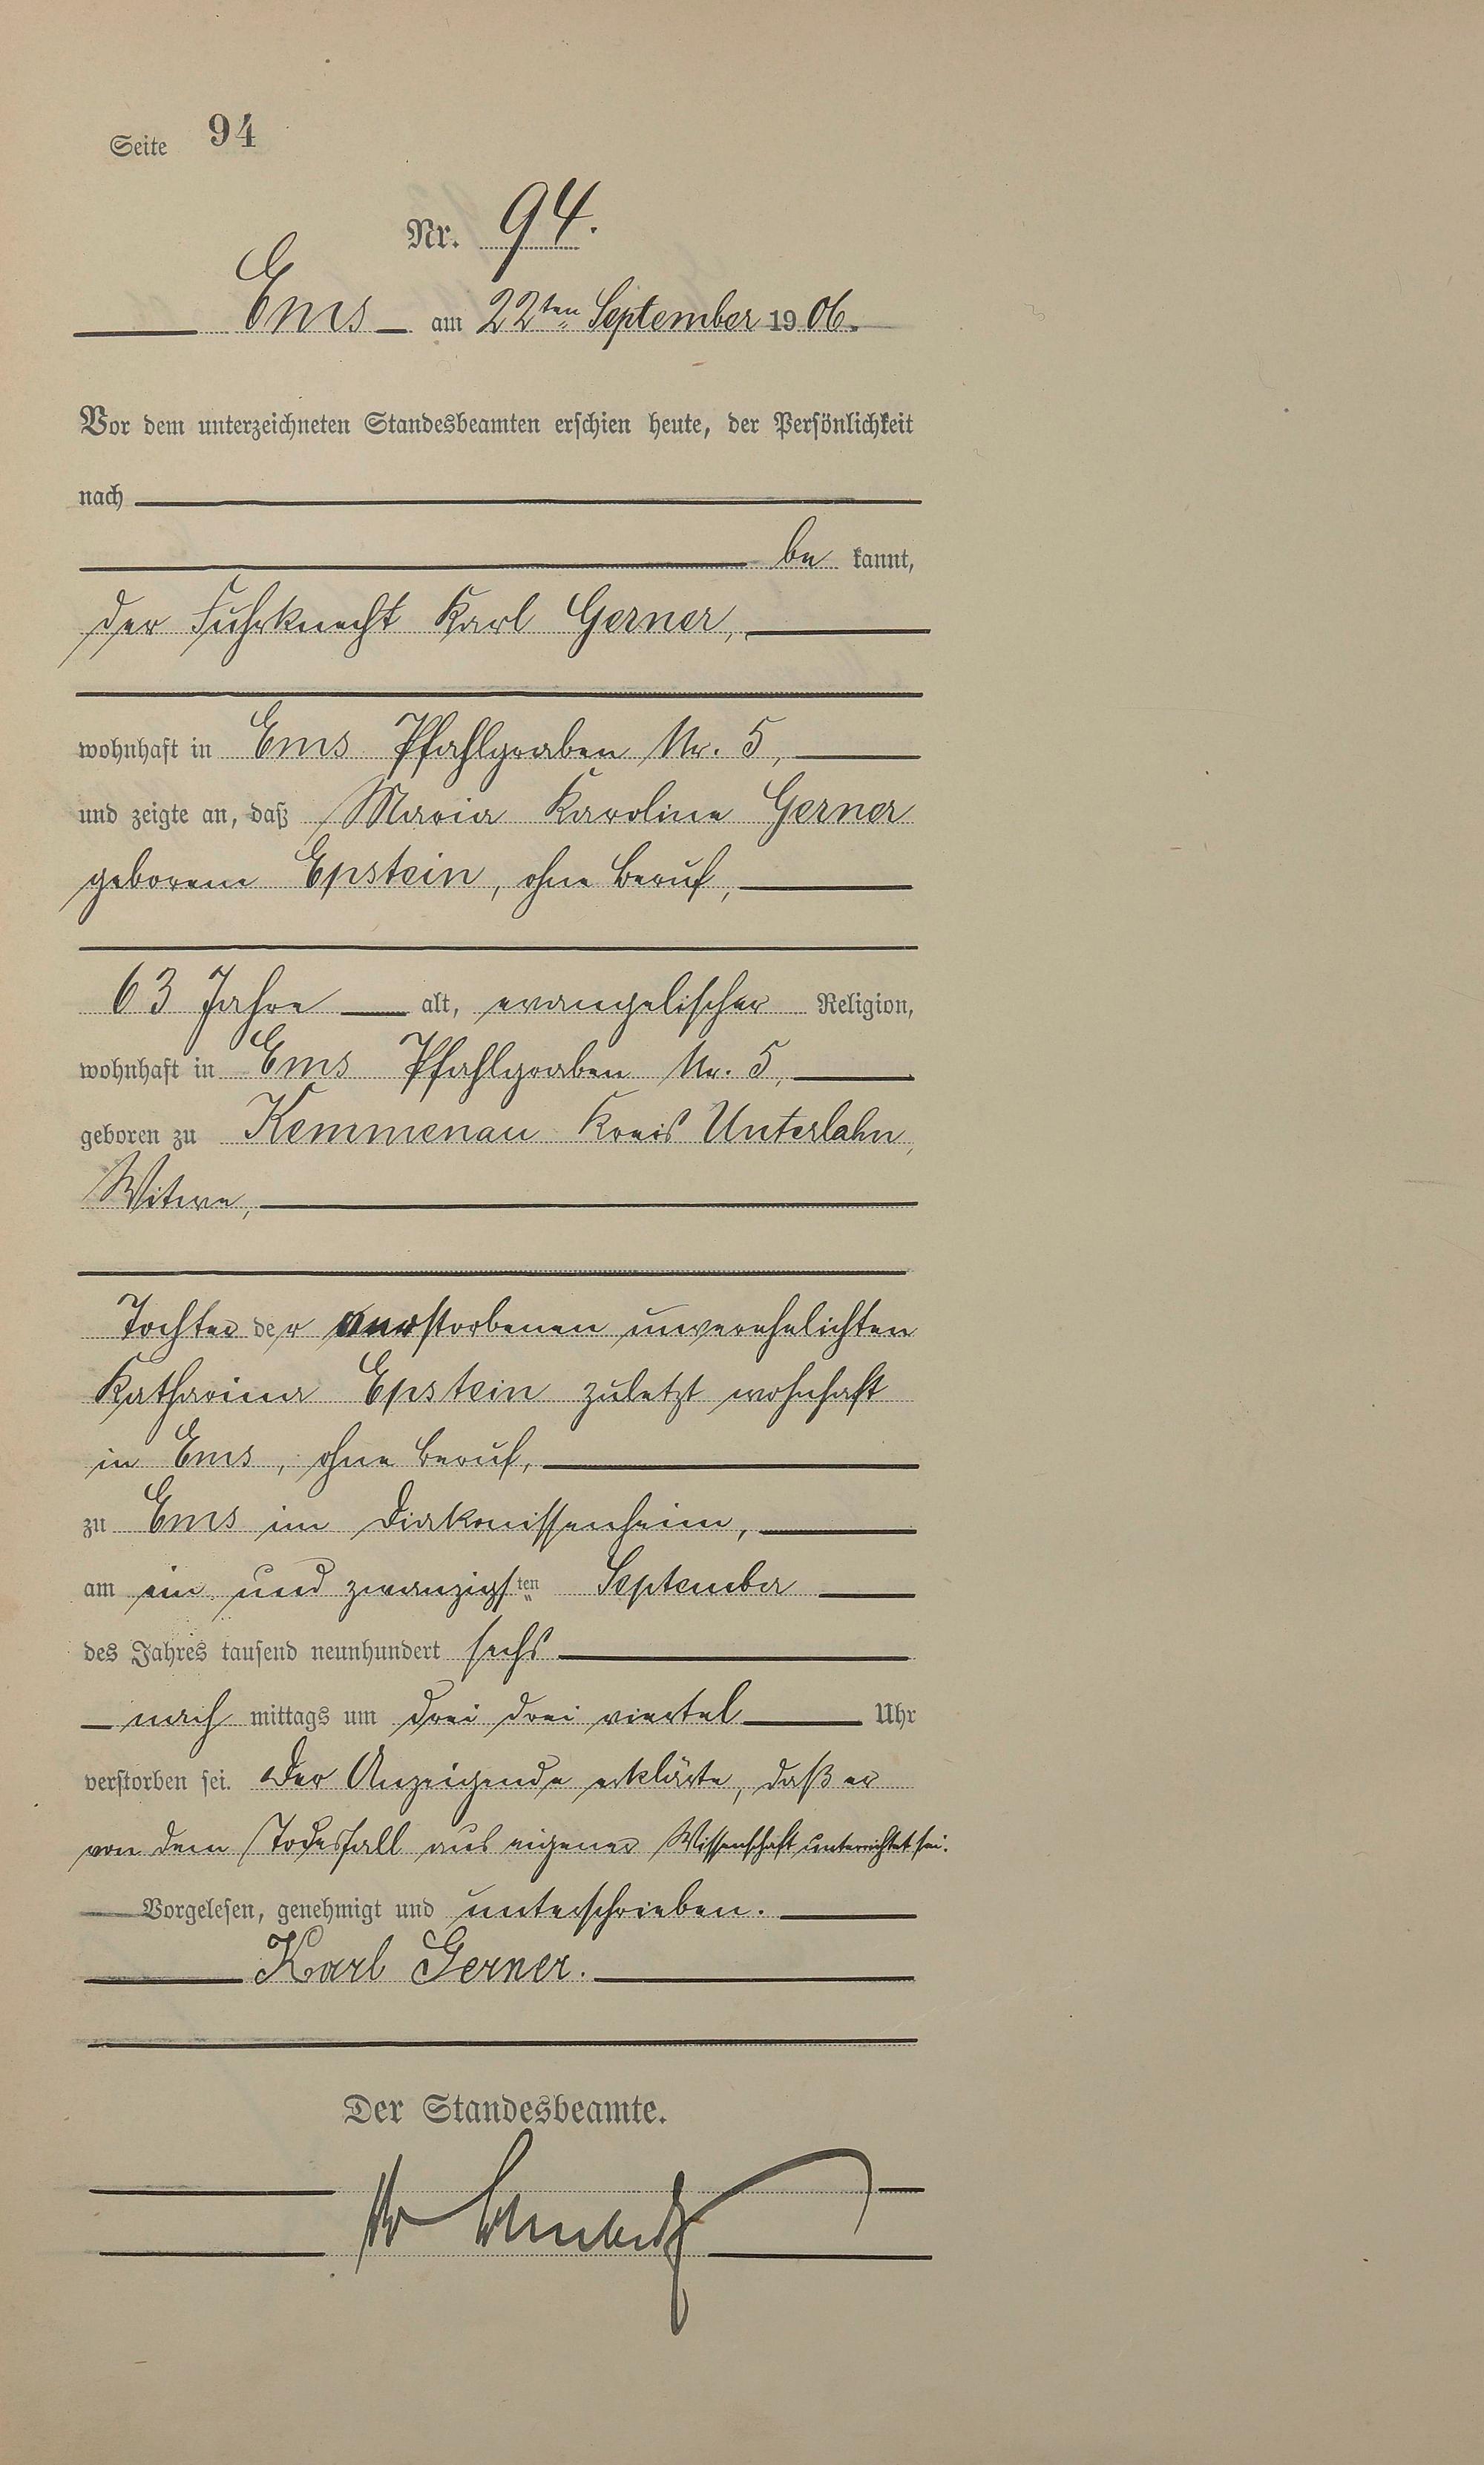 Seite 94
Nr. 94.
Ems am 22ten September 1906.
Vor dem unterzeichneten Standesbeamten erschien heute, der Persönlichkeit
nach
be kannt,
der Fuhrknecht Karl Gerner,
wohnhaft in Ems Pfahlgraben Nr. 5,
und zeigte an, daß Maria Karoline Gerner
geborene Epstein, ohne Beruf,
63 Jahre alt, evangelischer Religion,
wohnhaft in Ems Pfahlgraben Nr. 5,
geboren zu Kemmenau Kreis Unterlahn,
Witwe,
Tochter der verstorbenen unverehelichten
Katharina Epstein zuletzt wohnhaft
in Ems, ohne Beruf,
zu Ems im Diakonissenheim,
am ein und zwanzigsten September
des Jahres tausend neunhundert sechs
nach mittags um drei drei viertel Uhr
verstorben sei. Der Anzeigende erklärte, daß er
von dem Todesfall aus eigener Wissenschaft unterrichtet sei.
Vorgelesen, genehmigt und unterschrieben.
Karl Gerner.
Der Standesbeamte.